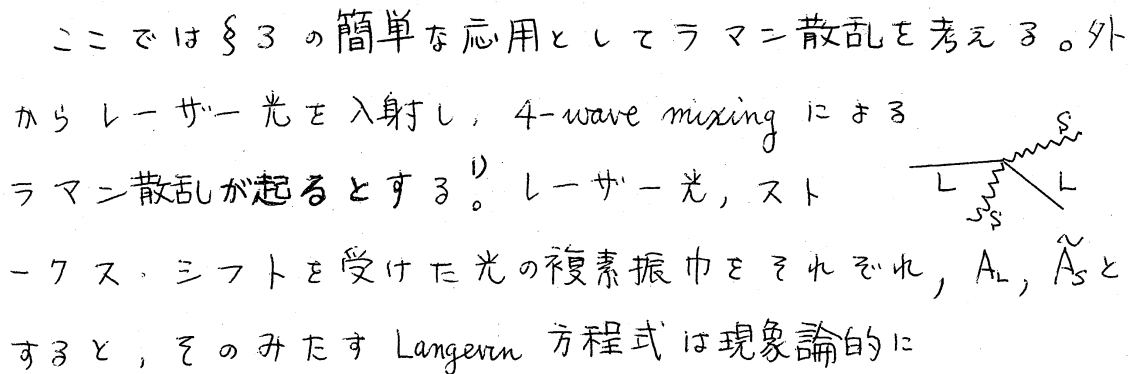 ここでは§3の簡単な応用としてラマン散乱を考える。外
からレーザー光を入射し，4-wave mixing による
ラマン散乱が起るとする。1) レーザー光，スト
ークス・シフトを受けた光の複素振巾をそれぞれ，A_L，Ã_S と
すると，そのみたす Langevin 方程式は現象論的に
S
L
L
S